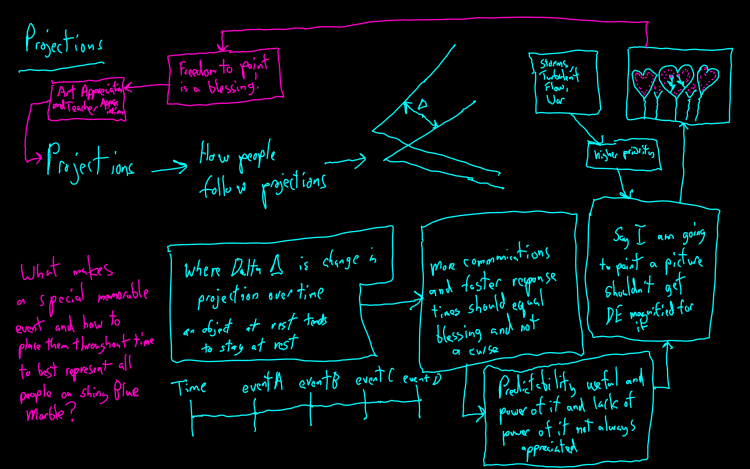 Projections
Freedom to paint
is a blessing!
Art Appreciation
and Teacher Appre
ciation
Storms,
Turbulent
Flow,
War
Higher priority
Projections
How people
follow projections
Δ
Say I am going
to paint a picture
shouldn't get
DE magnified for
it
What makes
a special memorable
event and how to
place them throughout time
to best represent all
people on shiny Blue
Marble?
Where Delta Δ is change in
projection over time
an object at rest tends
to stay at rest
more communications
and faster response
times should equal
blessing and not
a curse
Time event A event B event C event D
Predictability useful and
power of it and lack of
power of it not always
appreciated